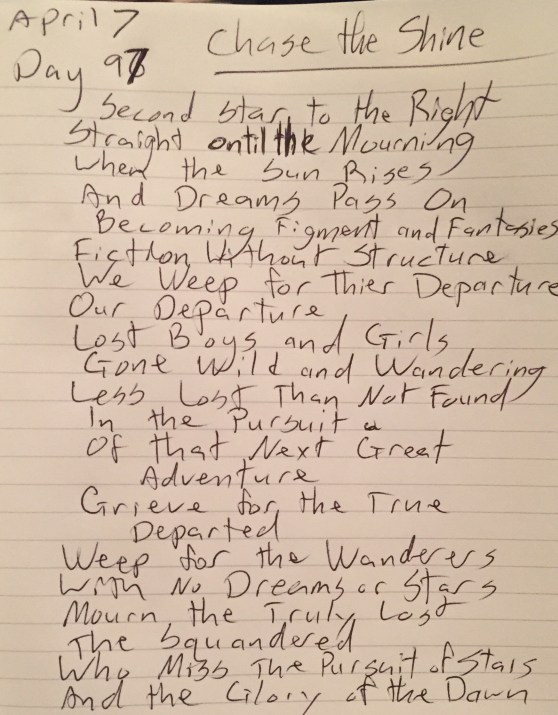 April 7
Chase the Shine
Day 97
Second Star to the Right
Straight ontil the Mourning
When the Sun Rises
And Dreams Pass On
Becoming Figment and Fantasies
Fiction Without Structure
We Weep for Thier Departure
Our Departure
Lost Boys and Girls
Gone Wild and Wandering
Less Lost Than Not Found
In the Pursuit
Of that Next Great
Adventure
Grieve for the True
Departed
Weep for the Wanderers
With No Dreams or Stars
Mourn the Truly Lost
The Squandered
Who Miss The Pursuit of Stars
And the Glory of the Dawn